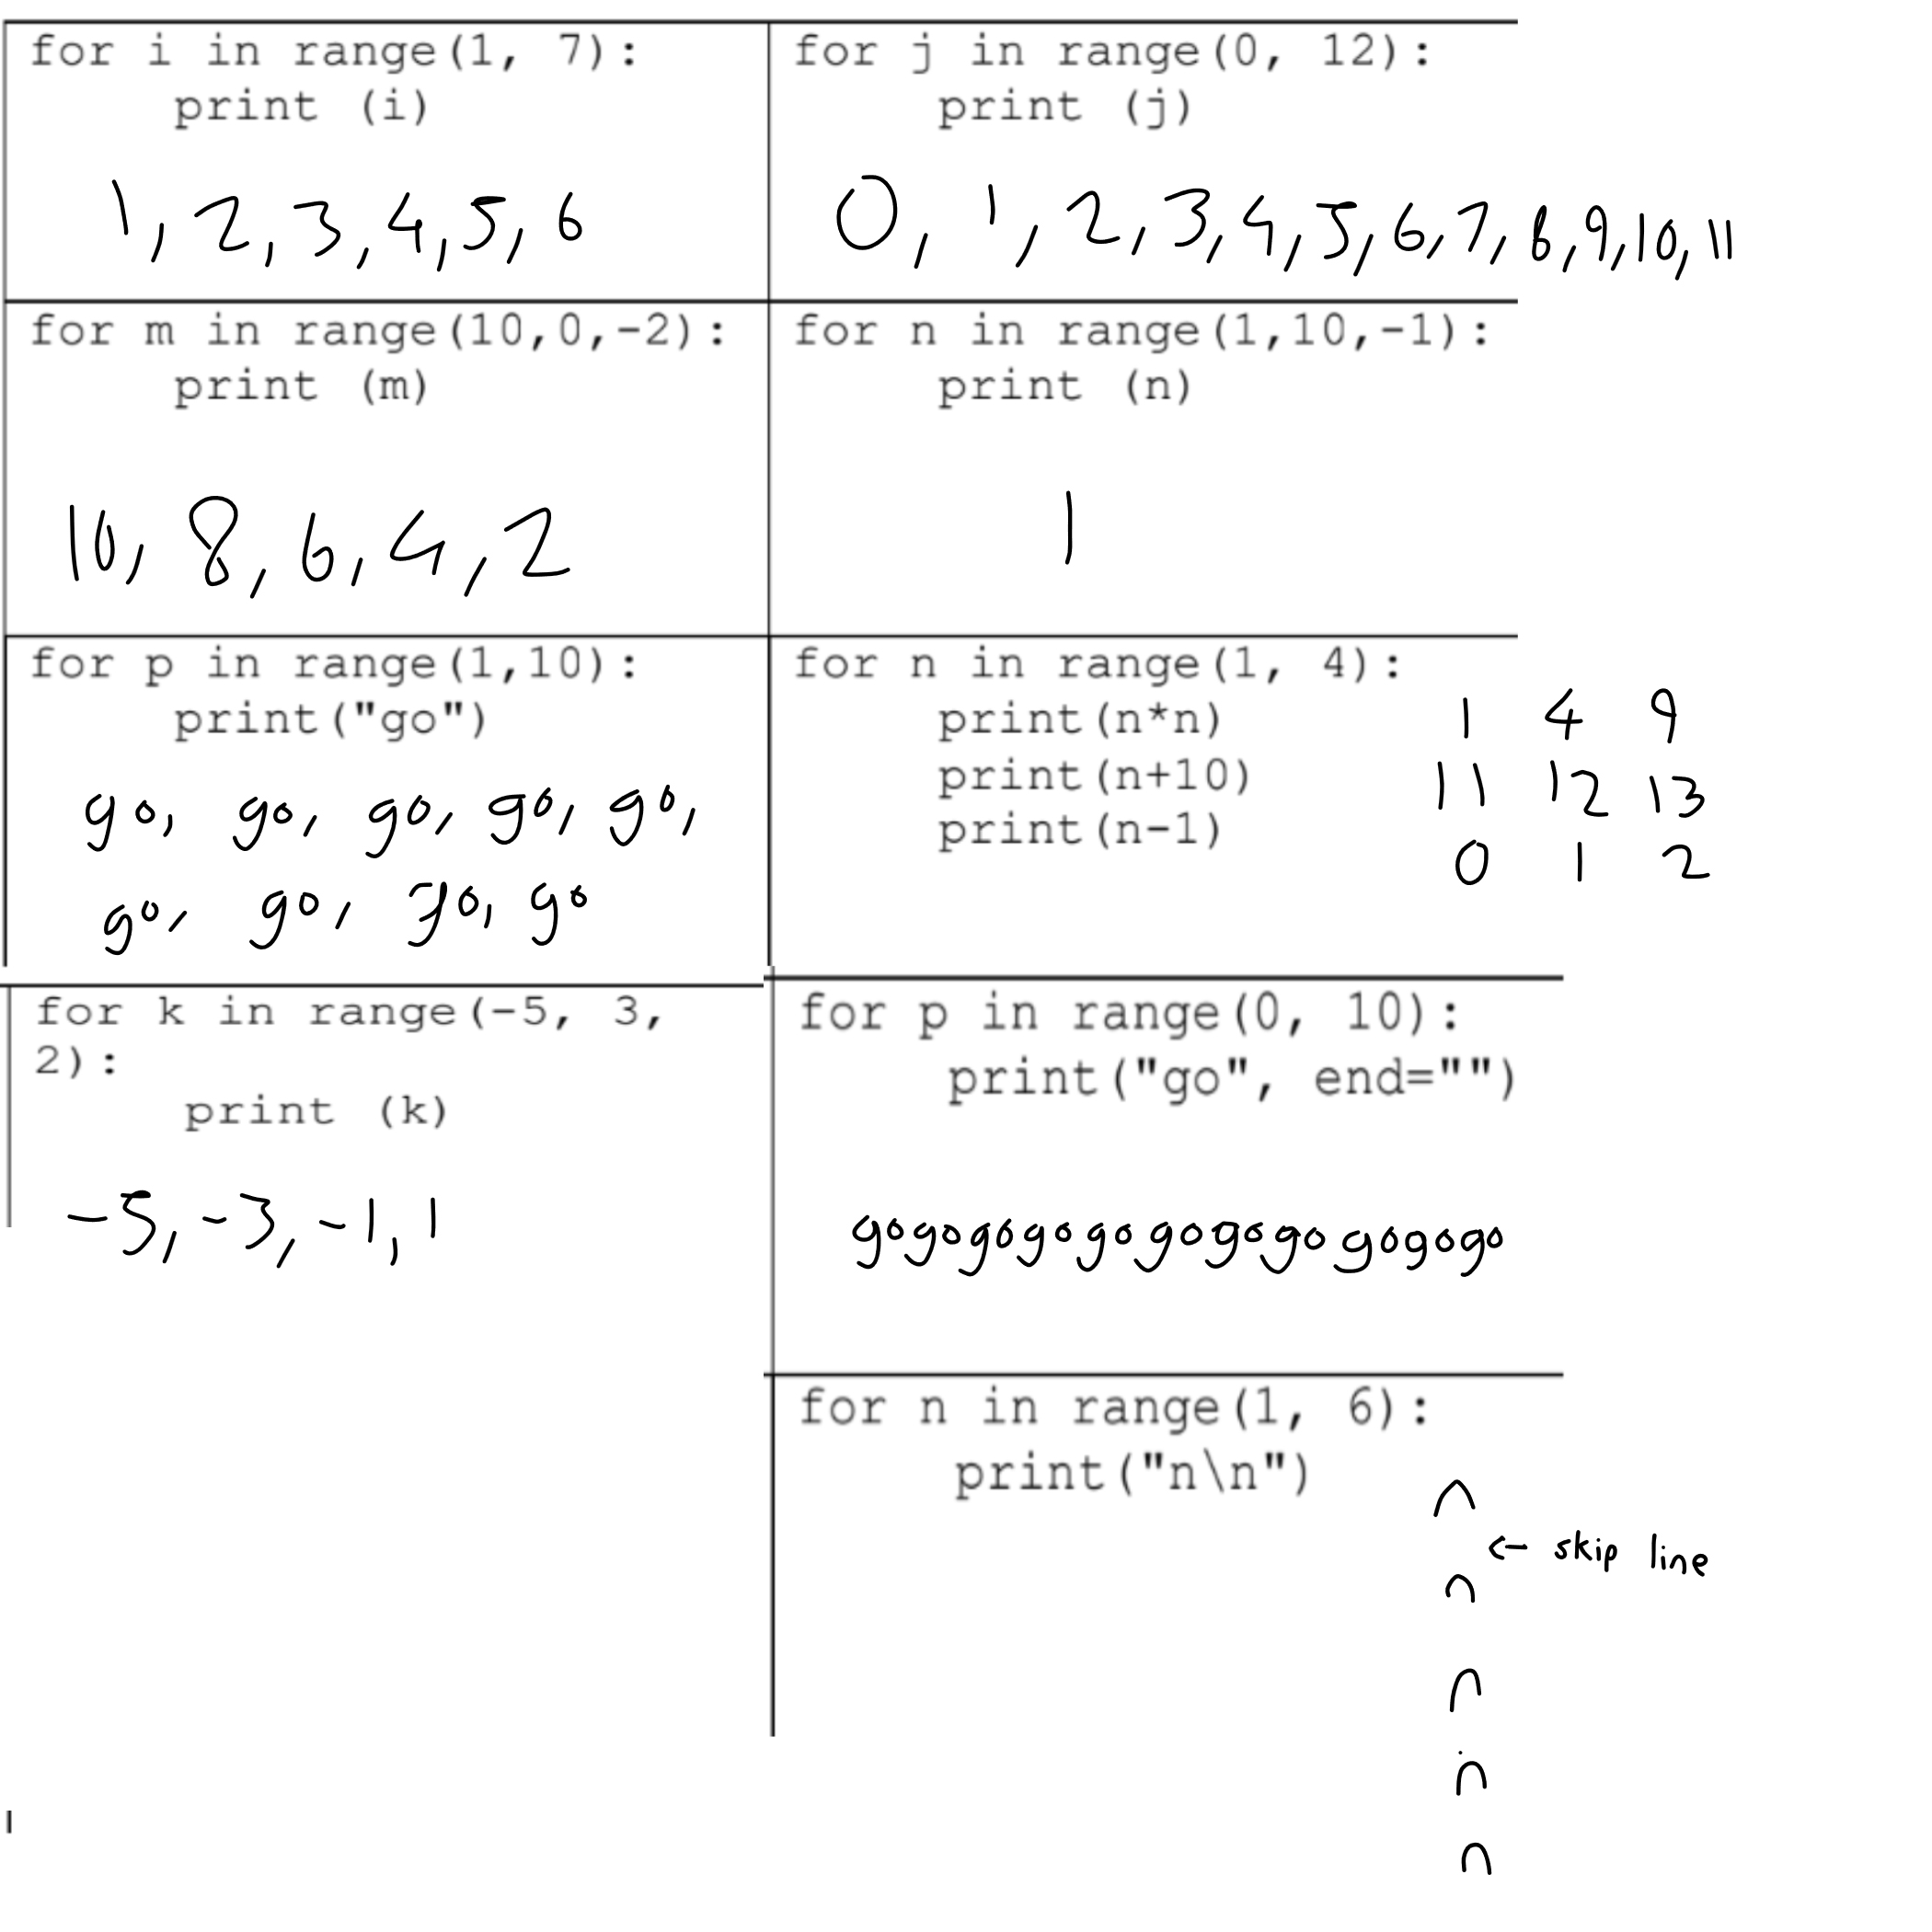 for i in range(1, 7):
print (i)
1, 2, 3, 4, 5, 6
for j in range(0, 12):
print (j)
0, 1, 2, 3, 4, 5, 6, 7, 8, 9, 10, 11
for m in range(10,0,-2):
print (m)
10, 8, 6, 4, 2
for n in range(1,10,-1):
print (n)
1
for p in range(1,10):
print("go")
go, go, go, go, go,
go, go, go, go
for n in range(1, 4):
print(n*n) 1 4 9
print(n+10) 11 12 13
print(n-1) 0 1 2
for k in range(-5, 3,
2):
print (k)
-5, -3, -1, 1
for p in range(0, 10):
print("go", end="")
gogogogogogogogogogogo
for n in range(1, 6):
print("n\n")
n
← skip line
n
n
n
n